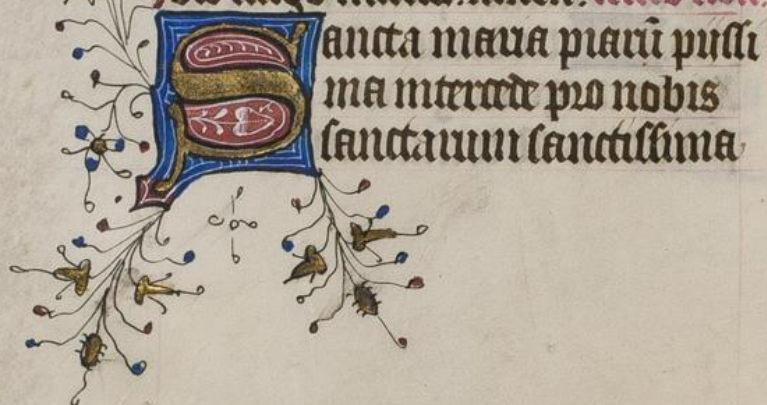 Sancta maria piarū piissi
ma intercede pro nobis
sanctarum sanctissima